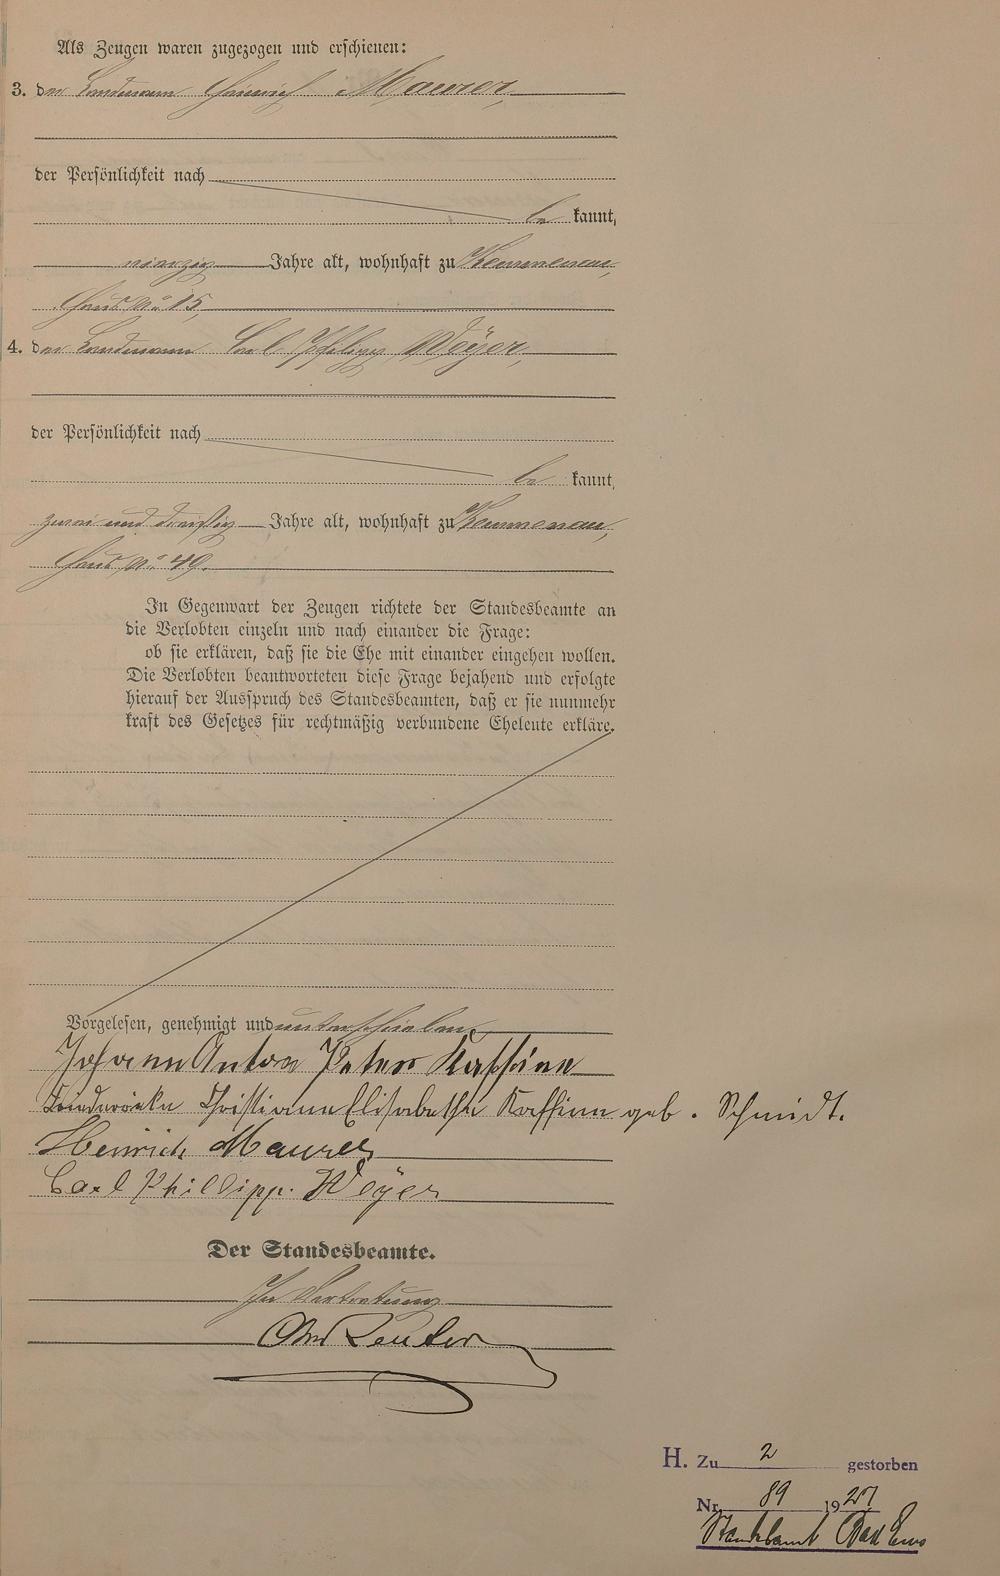 Als Zeugen waren zugezogen und erschienen:
3. der Landmann Heinrich Maurer,
der Persönlichkeit nach
be kannt,
vierzig Jahre alt, wohnhaft zu Kemmenau,
Haus No 15,
4. der Landmann Carl Philipp Weÿer,
der Persönlichkeit nach
be kannt,
zwei und dreißig Jahre alt, wohnhaft zu Kemmenau,
Haus No 49.
In Gegenwart der Zeugen richtete der Standesbeamte an
die Verlobten einzeln und nach einander die Frage:
ob sie erklären, daß sie die Ehe mit einander eingehen wollen.
Die Verlobten beantworteten diese Frage bejahend und erfolgte
hierauf der Ausspruch des Standesbeamten, daß er sie nunmehr
kraft des Gesetzes für rechtmäßig verbundene Eheleute erkläre.
Vorgelesen, genehmigt und unterschrieben
Johann Anton Peter Kaffine
Christianne Elisabethe Kaffine geb. Schmidt.
Heinrich Maurer
Carl Phillipp. Weÿer
Der Standesbeamte.
In Vertretung
Reuter
H. Zu 2 gestorben
Nr. 89 19
Standesamt Bad Ems